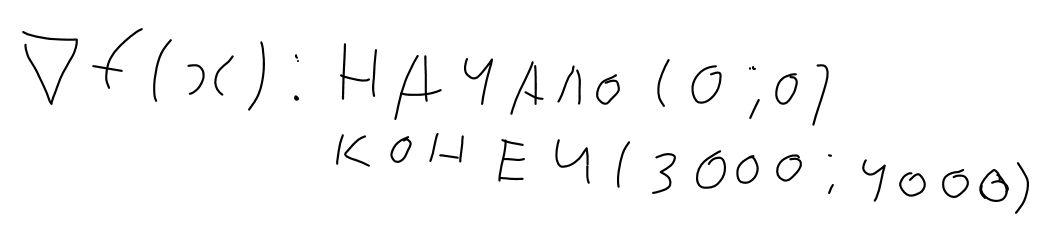 ∇f(x): НАЧАЛО (0;0)
КОНЕЧ(3000;4000)